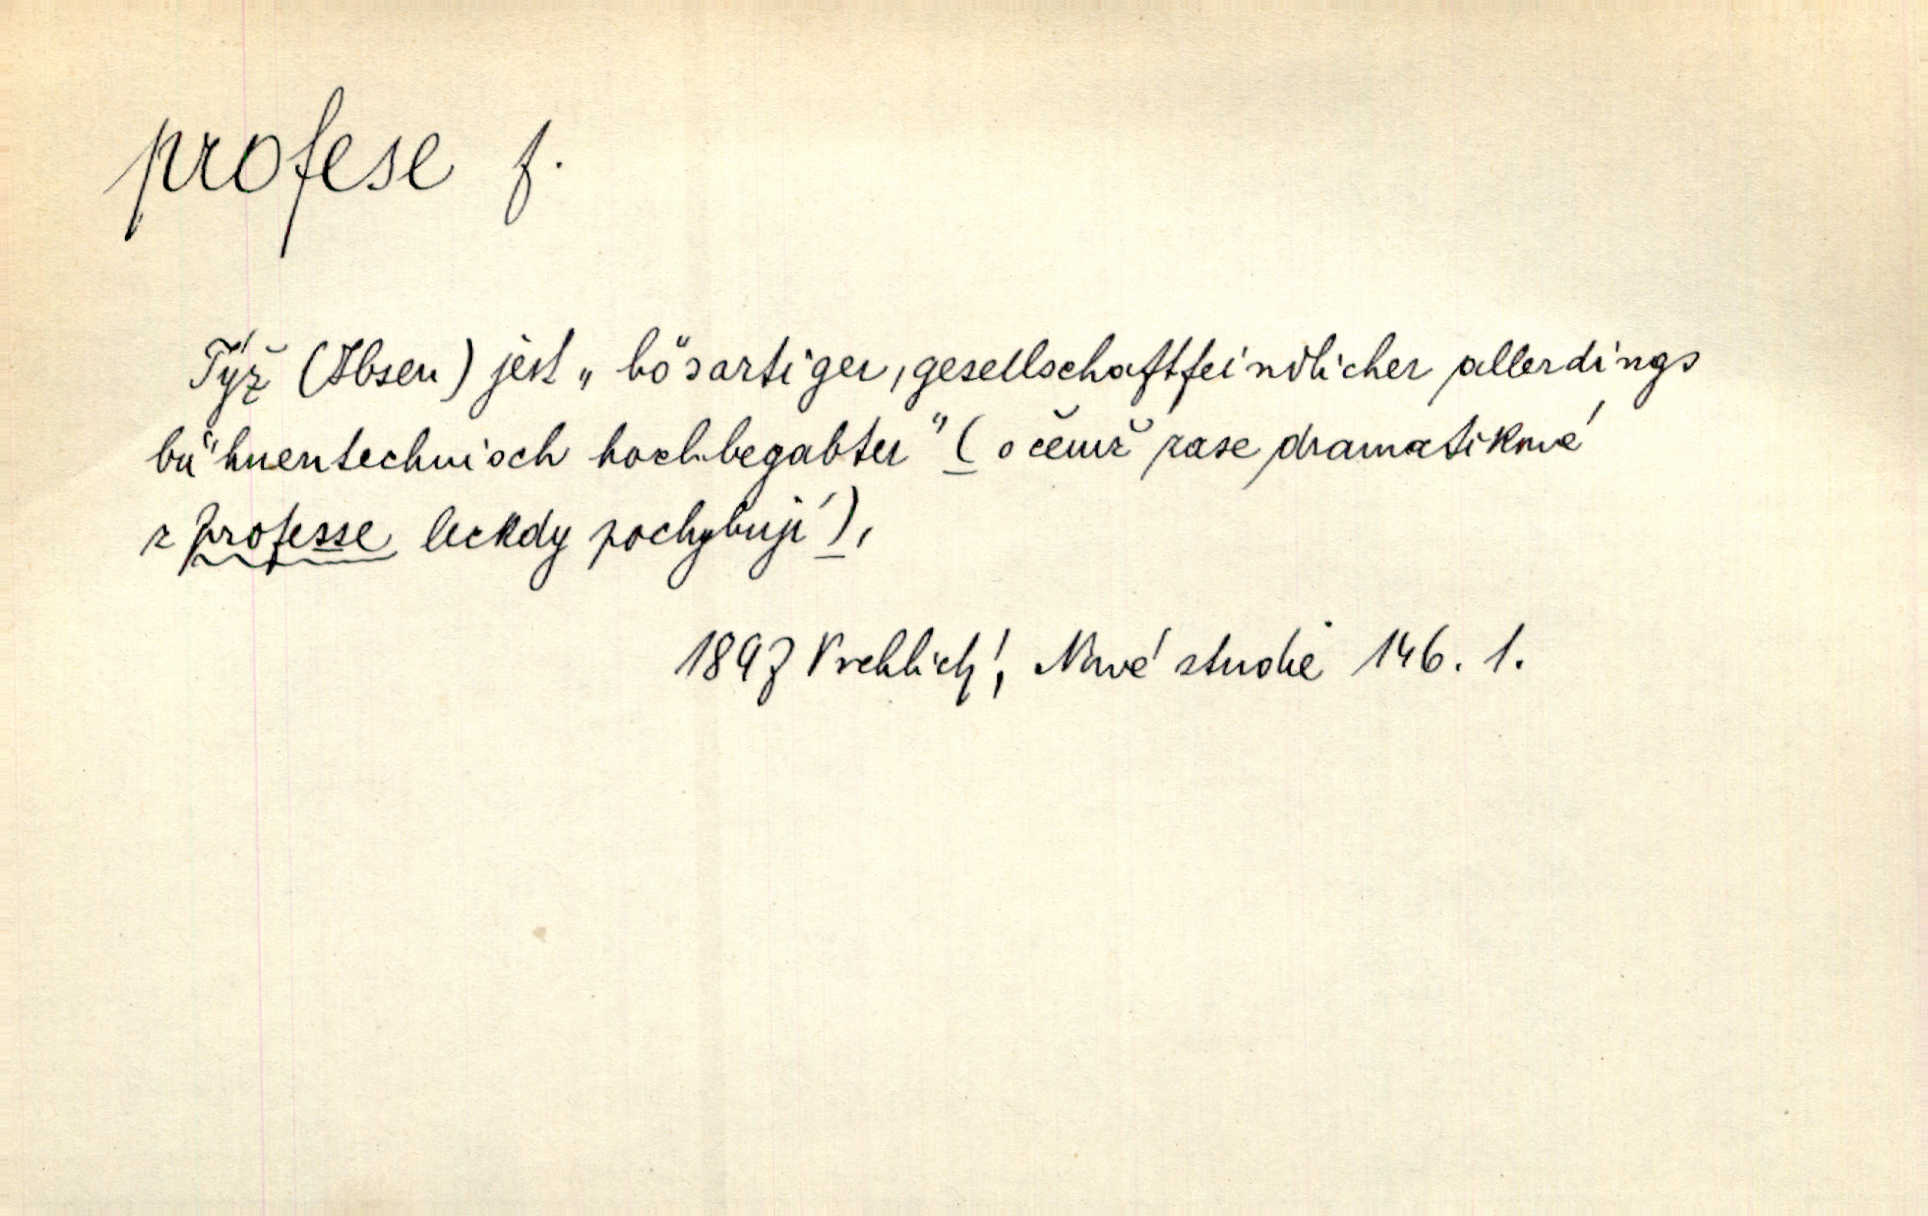 profese f.
Týž (Ibsen) jest „bösartiger, gesellschaftfeindlicher allerdings
bühnentechnisch hochbegabter" (o čemž zase dramatikové
z professe leckdy pochybují),
1897 Vrchlický, Nové studie 146. 1.